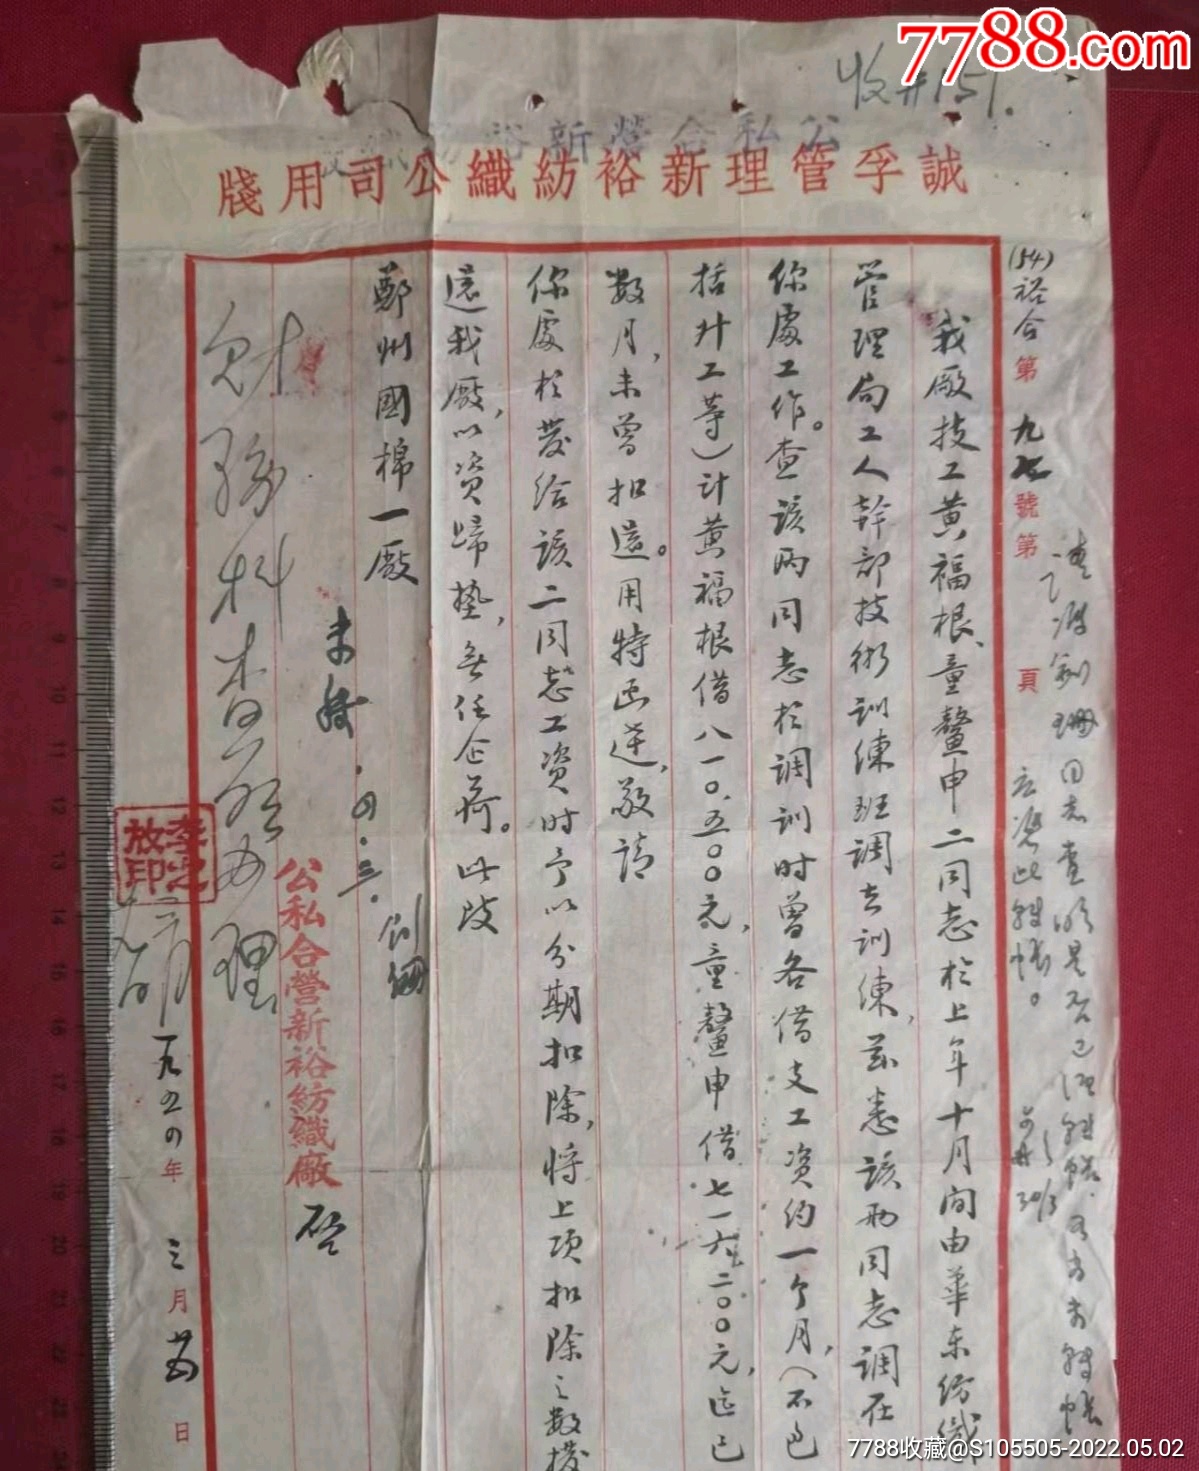 7788.com
收
公私合營新裕
誠孚管理新裕紡織公司用牋
(54)裕合第九七號第 頁
我廠技工黄福根、童鰲申二同志於上年十月間由華東紡織
管理局工人幹部技術訓練班調去訓練,兹悉該兩同志調在
你處工作。查該兩同志於調訓時曾各借支工資約一个月,(不包
括升工等)計黄福根借八一〇.五〇〇元,童鰲申借七一六.二〇〇元,迄已
数月,未曾扣還。用特函達,敬請
你處於發給該二同志工資时予以分期扣除,將上项扣除之数撥
還我廠,以资歸墊,無任企荷。此致
鄭州國棉一廠
公私合營新裕紡織廠 啓
一九五四年三月 日
财務科查照办理
7788收藏@S105505-2022.05.02